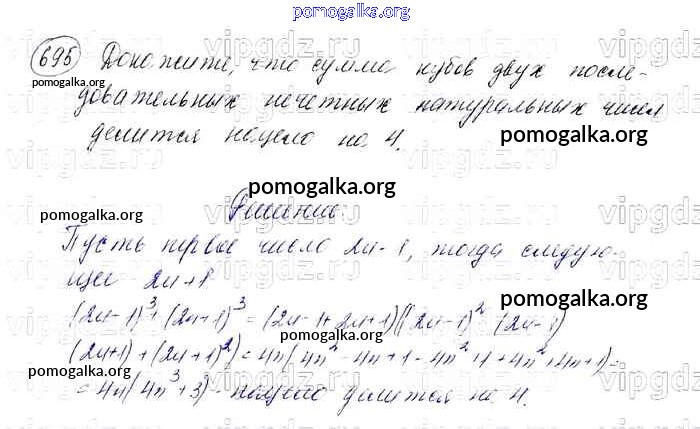 pomogalka.org
695 Докажите, что сумма кубов двух после-
pomogalka.org
довательных нечетных натуральных чисел
делится нацело на 4.
pomogalka.org
pomogalka.org
Решение:
pomogalka.org
Пусть первое число 2n-1, тогда следую-
щее 2n+1
pomogalka.org
(2n-1)³+(2n+1)³=(2n-1+2n+1)((2n-1)²-(2n-1)
(2n+1)+(2n+1)²)=4n(4n²-4n+1-4n²+1+4n²+4n+1)=
pomogalka.org
=4n(4n³+3) - нацело делится на 4.
pomogalka.org
vipgdz.ru